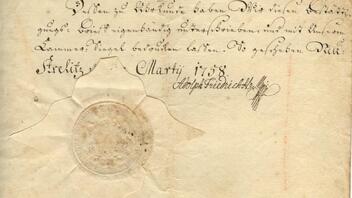 Dessen zu Uhrkunde haben Wir diesen Bestäti¬
gungs: Brieff eigenhändig unterschrieben, und mit Unserm
Cammer-Siegel bedrucken lassen. So geschehen Neu
Strelitz Martij 1758
Adolph Friedrich